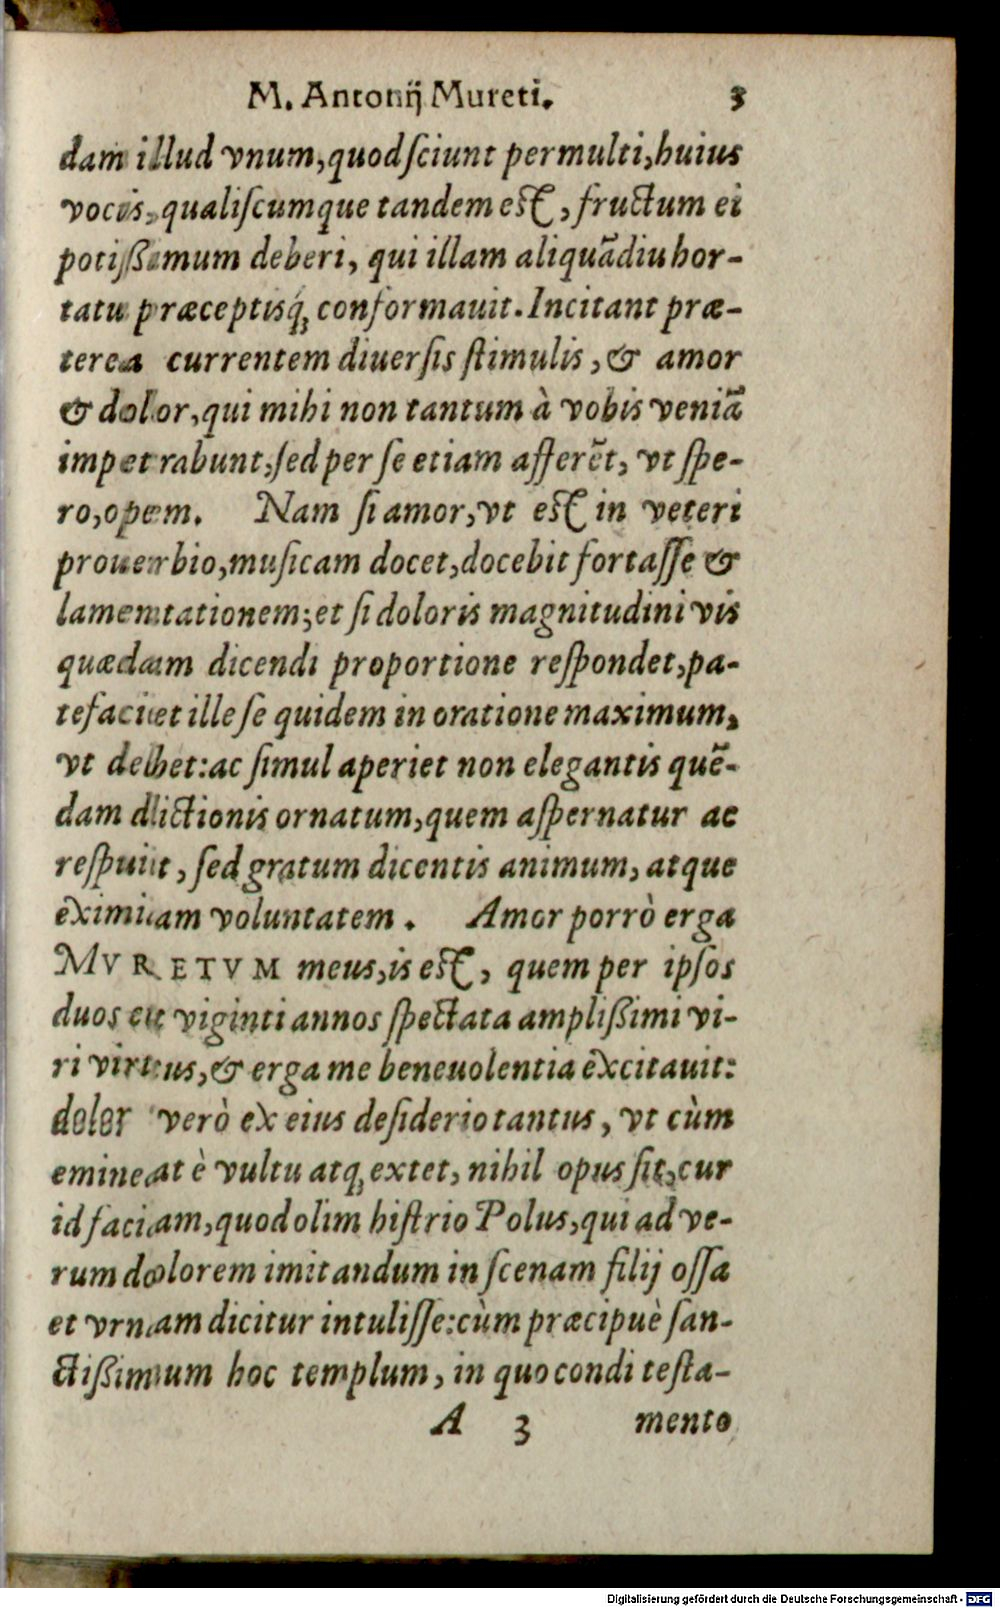 M. Antonij Mureti. 3
dam illud vnum, quod sciunt permulti, huius
vocis, qualiscumque tandem est, fructum ei
potißimum deberi, qui illam aliquãdiu hor-
tatu præceptisq́; conformauit. Incitant præ-
terea currentem diuersis stimulis, & amor
& dolor, qui mihi non tantum à vobis veniã
impetrabunt; sed per se etiam afferẽt, vt spe-
ro, opem. Nam si amor, vt est in veteri
prouerbio, musicam docet, docebit fortasse &
lamentationem; et si doloris magnitudini vis
quædam dicendi proportione respondet, pa-
tefaciet ille se quidem in oratione maximum,
vt debet: ac simul aperiet non elegantis quẽ-
dam dictionis ornatum, quem aspernatur ac
respuit, sed gratum dicentis animum, atque
eximiam voluntatem. Amor porrò erga
MVRETVM meus, is est, quem per ipsos
duos et viginti annos spectata amplißimi vi-
ri virtus, & erga me beneuolentia excitauit:
dolor verò ex eius desiderio tantus, vt cùm
emineat è vultu atq; extet, nihil opus sit, cur
id faciam, quod olim histrio Polus, qui ad ve-
rum dolorem imitandum in scenam filij ossa
et vrnam dicitur intulisse: cùm præcipuè san-
ctißimum hoc templum, in quo condi testa-
A 3 mento
Digitalisierung gefördert durch die Deutsche Forschungsgemeinschaft - DFG